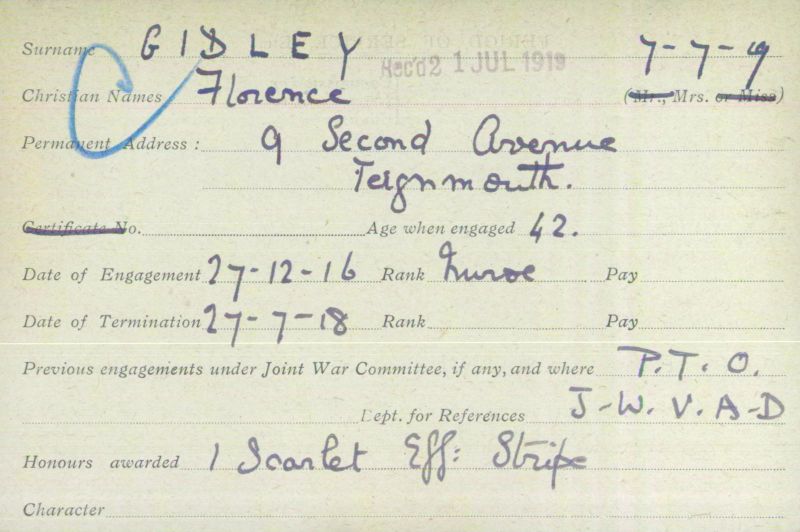 Surname GIDLEY 7-7-19
Rec'd 21 JUL 1919
Christian Names Florence (Mr., Mrs. or Miss)
Permanent Address: 9 Second Avenue
Teignmouth.
Certificate No. Age when engaged 42.
Date of Engagement 27-12-16 Rank Nurse Pay
Date of Termination 27-7-18 Rank Pay
Previous engagements under Joint War Committee, if any, and where P.T.O.
Dept. for References J-W.V.A-D
Honours awarded 1 Scarlet Eff: Stripe
Character